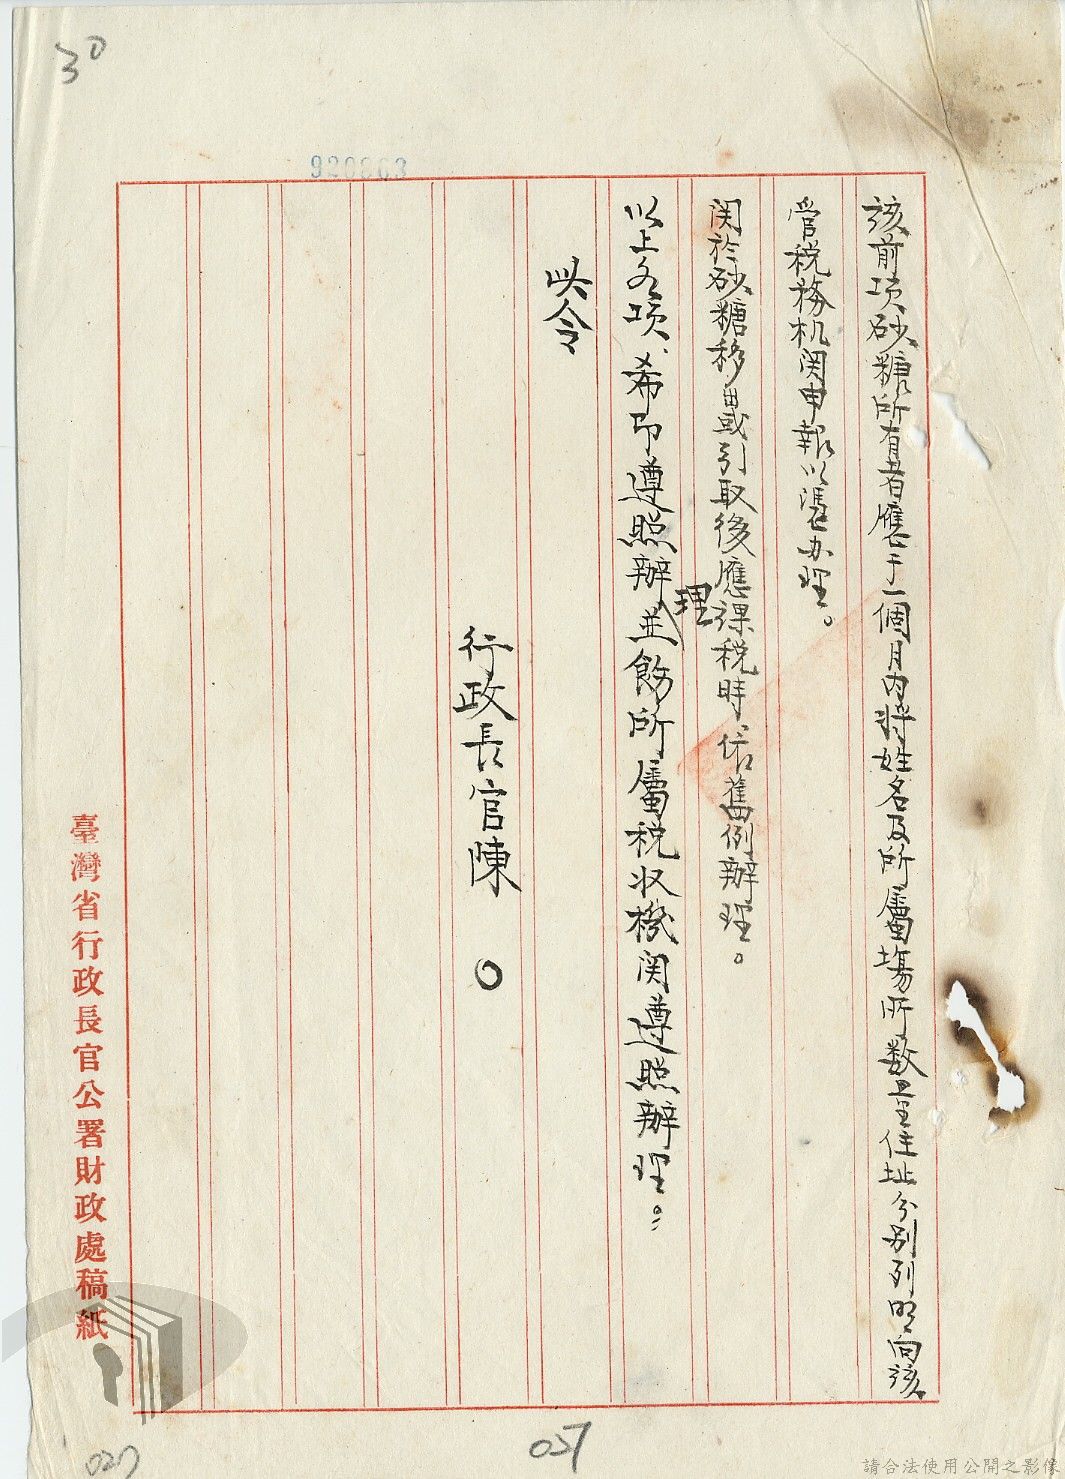 30
920663
該前項砂糖所有者應于一個月內将姓名及所屬場所数量住址分別列明向該
管税務机関申報以憑办理。
関於砂糖移出或引取後應課税時、依舊例辦理。
以上各項、希即遵照辦理並飭所屬税收機関遵照辦理。
此令
行政長官陳〇
臺灣省行政長官公署財政處稿紙
027
057
請合法使用公開之影像